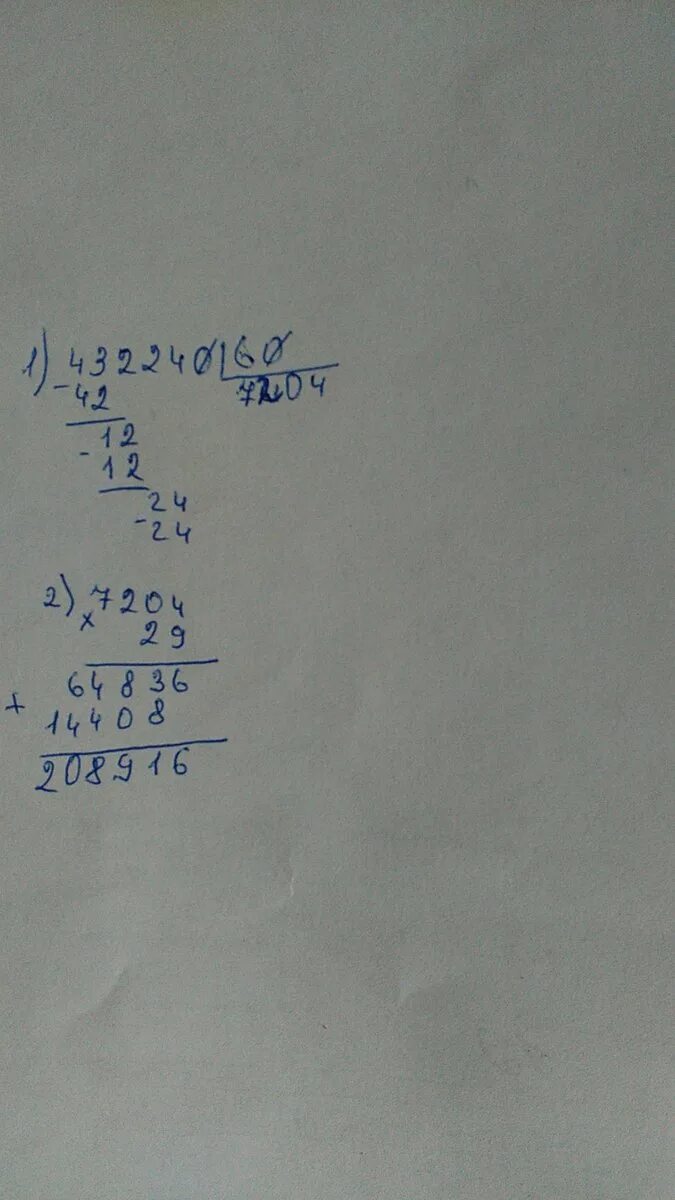 1) 432240 | 60
- 42 7204
- 12
12
24
- 24
2) × 7204
29
+ 64836
14408
208916